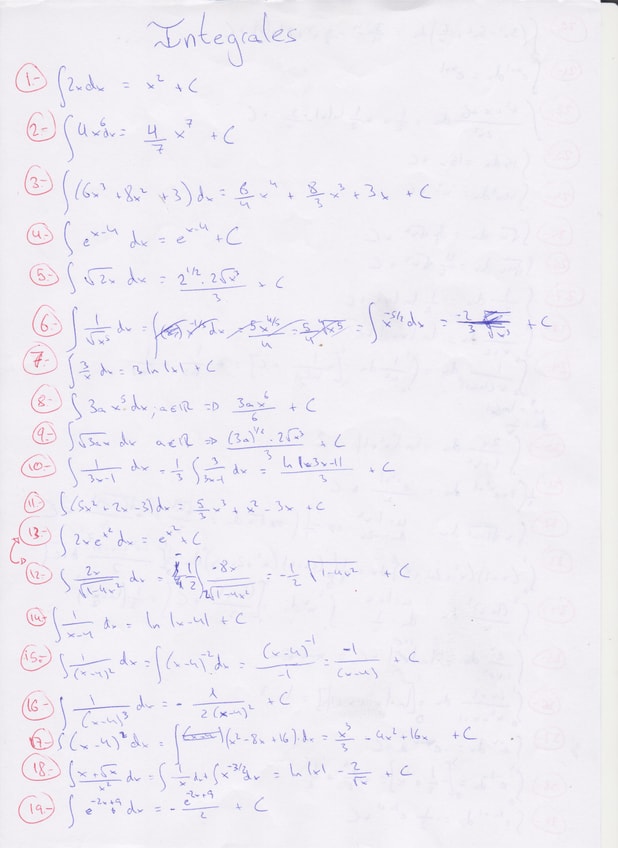 Integrales
1.- ∫2x dx = x² + C
2.- ∫4x⁶dx = 4/7 x⁷ + C
3.- ∫(6x³ + 8x² + 3) dx = 6/4 x⁴ + 8/3 x³ + 3x + C
4.- ∫e^(x-4) dx = e^(x-4) + C
5.- ∫√2x dx = (2^(1/2) · 2√x³)/3 + C
6.- ∫1/√x⁵ dx = = ∫x^(-5/2) dx = -2/(3√x³) + C
7.- ∫3/x dx = 3 ln|x| + C
8.- ∫3ax⁵ dx, a∈ℝ => 3ax⁶/6 + C
9.- ∫√3ax dx a∈ℝ => ((3a)^(1/2) · 2√x³)/3 + C
10.- ∫1/(3x-1) dx = 1/3 ∫3/(3x-1) dx = ln|3x-1|/3 + C
11.- ∫(5x² + 2x - 3) dx = 5/3 x³ + x² - 3x + C
13.- ∫2x e^(x²) dx = e^(x²) + C
12.- ∫2x/√(1-4x²) dx = 1/2 ∫-8x/(2√(1-4x²)) = -1/2 √(1-4x²) + C
14.- ∫1/(x-4) dx = ln|x-4| + C
15.- ∫1/(x-4)² dx = ∫(x-4)⁻² dx = (x-4)⁻¹/-1 = -1/(x-4) + C
16.- ∫1/(x-4)³ dx = - 1/(2(x-4)²) + C
17.- ∫(x-4)² dx = ∫(x² - 8x + 16) dx = x³/3 - 4x² + 16x + C
18.- ∫(x+√x)/x² dx = ∫1/x dx + ∫x^(-3/2) dx = ln|x| - 2/√x + C
19.- ∫e^(-2x+9) dx = - e^(-2x+9)/2 + C